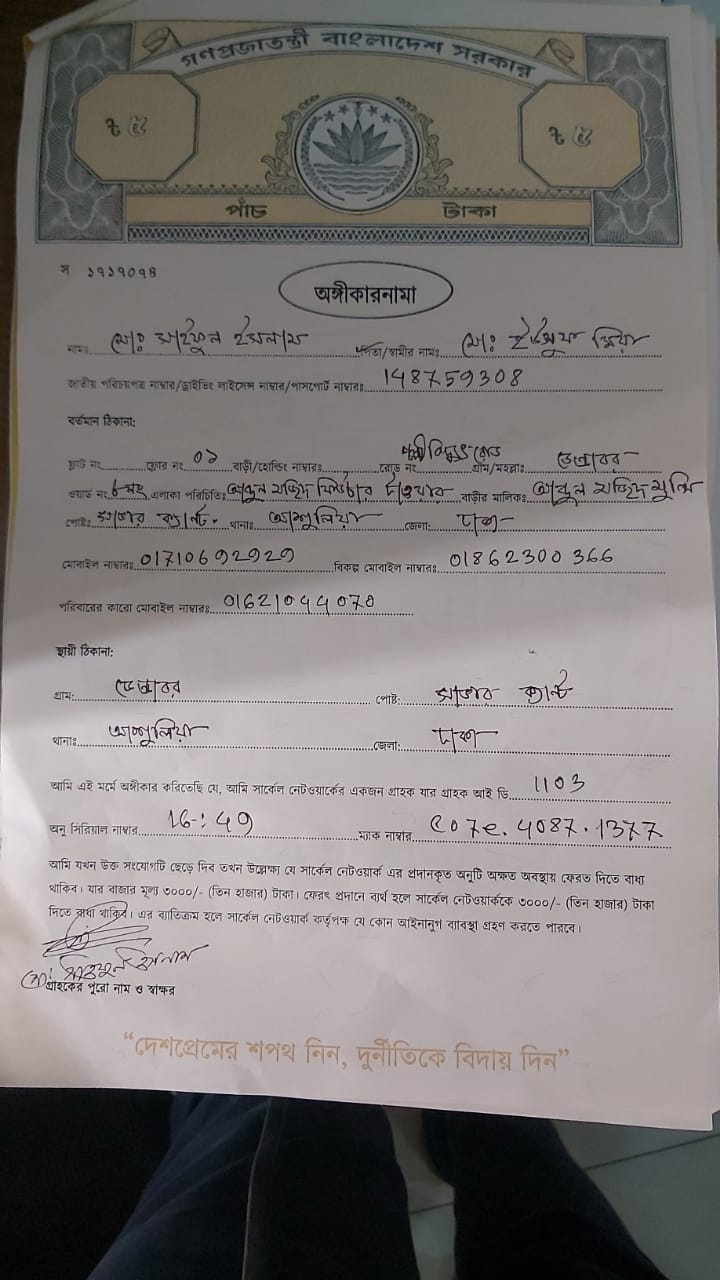 গণপ্রজাতন্ত্রী বাংলাদেশ সরকার
৳ ৫ ৳ ৫
পাঁচ টাকা
স ১৭১৭০৭৪
অঙ্গীকারনামা
নাম: মো: সাইফুল ইসলাম পিতা/স্বামীর নাম: মো: ইউসুফ মিয়া
জাতীয় পরিচয়পত্র নাম্বার/ড্রাইভিং লাইসেন্স নাম্বার/পাসপোর্ট নাম্বার: 148759308
বর্তমান ঠিকানা:
ফ্লাট নং ফ্লোর নং ০১ বাড়ী/হোল্ডিং নাম্বারঃ রোড নং পল্লী বিদ্যুৎ রোড গ্রাম/মহল্লাঃ ডেন্ডাবর
ওয়ার্ড নং ৮নং এলাকা পরিচিতিঃ আব্দুল মজিদ টাওয়ার বাড়ীর মালিকঃ আব্দুল মজিদ মুন্সি
পোষ্টঃ সাভার ক্যান্ট. থানাঃ আশুলিয়া জেলাঃ ঢাকা
মোবাইল নাম্বারঃ 01710692929 বিকল্প মোবাইল নাম্বারঃ 01862300366
পরিবারের কারো মোবাইল নাম্বারঃ 01621044070
স্থায়ী ঠিকানা:
গ্রাম: ডেন্ডাবর পোষ্ট: সাভার ক্যান্ট
থানাঃ আশুলিয়া জেলা: ঢাকা
আমি এই মর্মে অঙ্গীকার করিতেছি যে, আমি সার্কেল নেটওয়ার্কের একজন গ্রাহক যার গ্রাহক আই ডি 1103
অনু সিরিয়াল নাম্বার 16-: 49 ম্যাক নাম্বার c07e.4087.1377
আমি যখন উক্ত সংযোগটি ছেড়ে দিব তখন উল্লেক্ষ্য যে সার্কেল নেটওয়ার্ক এর প্রদানকৃত অনুটি অক্ষত অবস্থায় ফেরত দিতে বাধ্য
থাকিব। যার বাজার মূল্য ৩০০০/- (তিন হাজার) টাকা। ফেরৎ প্রদানে ব্যর্থ হলে সার্কেল নেটওয়ার্ককে ৩০০০/- (তিন হাজার) টাকা
দিতে বাধ্য থাকিব। এর ব্যতিক্রম হলে সার্কেল নেটওয়ার্ক কর্তৃপক্ষ যে কোন আইনানুগ ব্যাবস্থা গ্রহণ করতে পারবে।
মো: সাইফুল ইসলাম
গ্রাহকের পুরো নাম ও স্বাক্ষর
“দেশপ্রেমের শপথ নিন, দুর্নীতিকে বিদায় দিন”